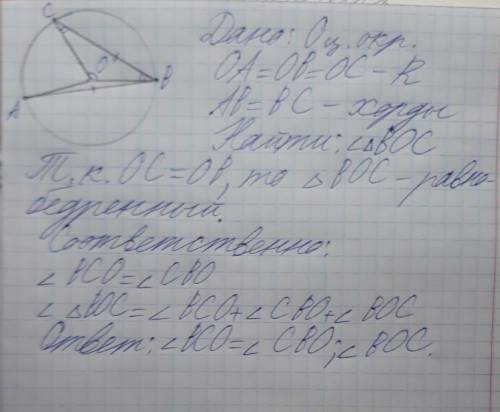 C
O
B
A
Дано: O ц. окр.
OA=OB=OC – R
AB=BC – хорды
Найти: ∠△BOC
Т.к. OC=OB, то △BOC – равно-
бедренный.
Соответственно:
∠BCO=∠CBO
∠△BOC=∠BCO+∠CBO+∠BOC
Ответ: ∠BCO=∠CBO; ∠BOC.